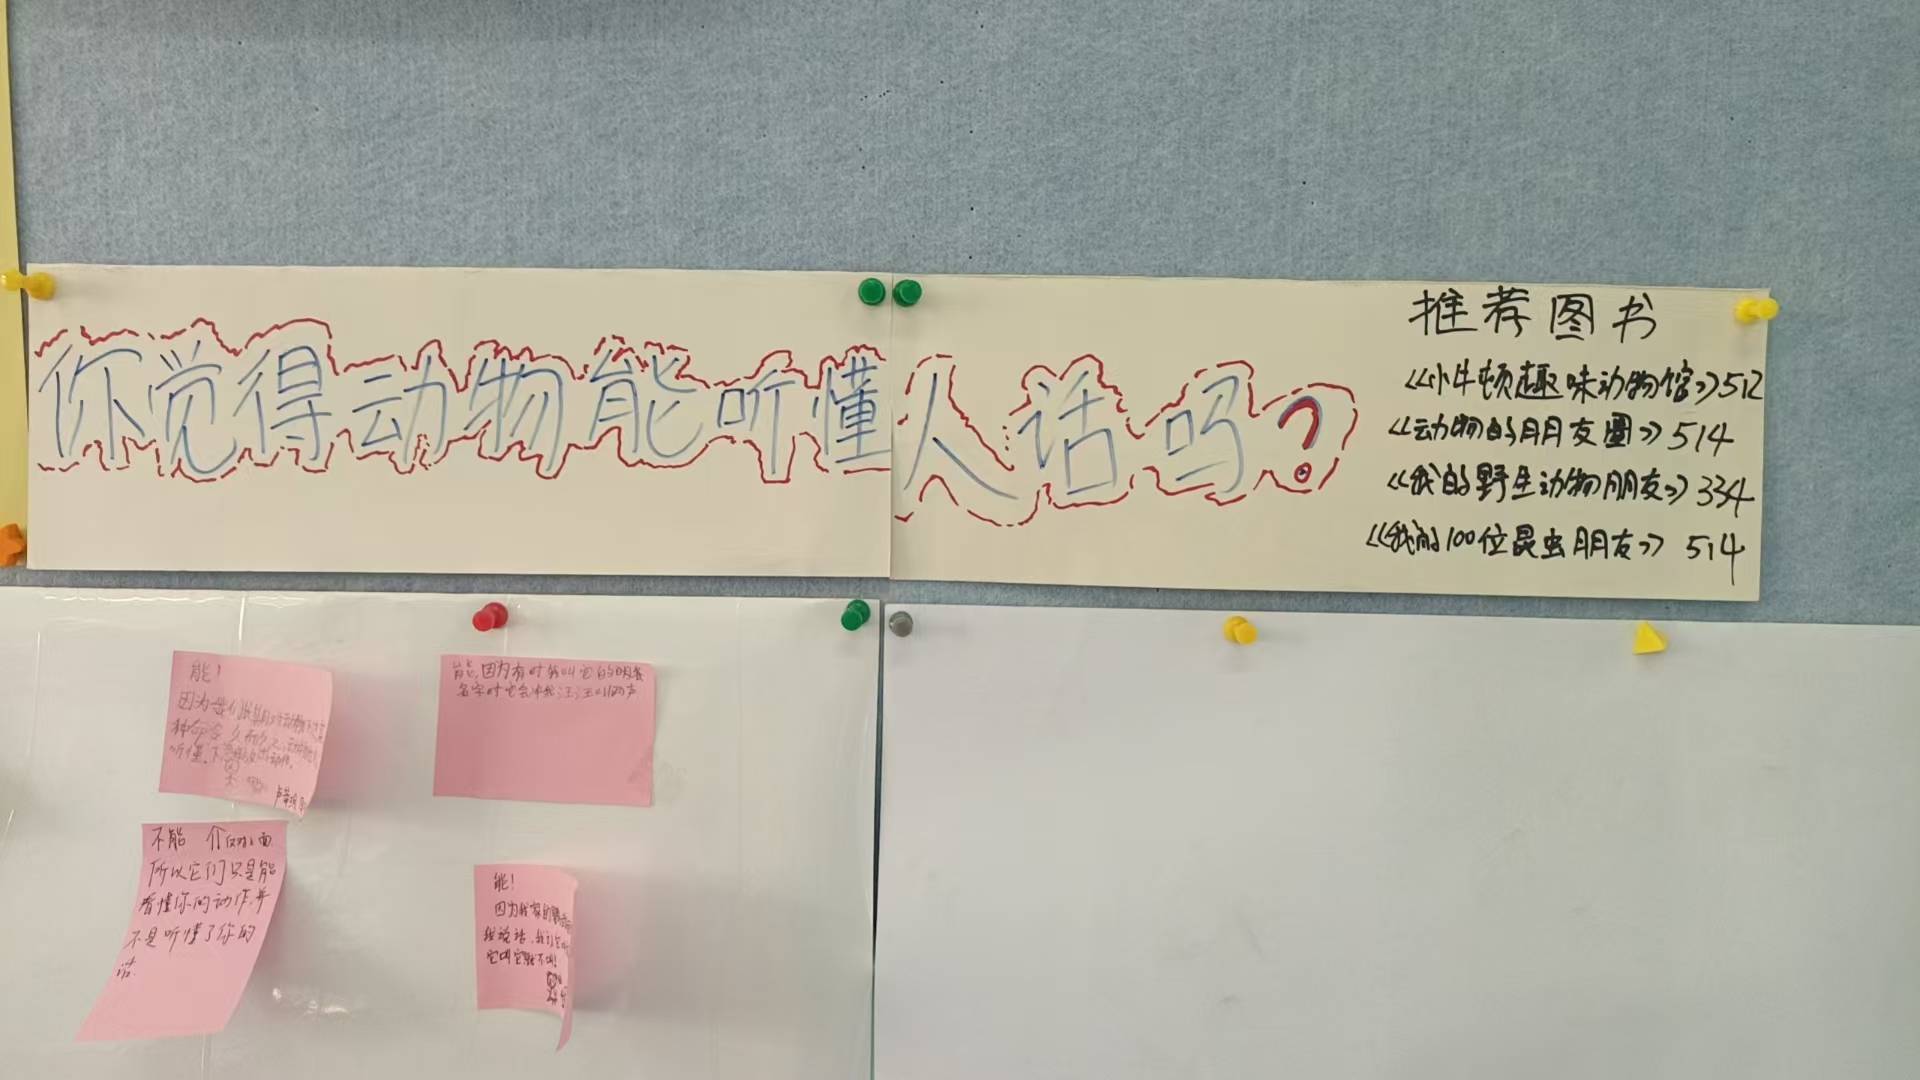 你觉得动物能听懂人话吗？
推荐图书
《小牛顿趣味动物馆》512
《动物的朋友圈》514
《我的野生动物朋友》334
《我的100位昆虫朋友》514
能！
因为
种命令 久而久之
听懂
能,因为有时我叫它的
名字时它会冲我汪汪叫两声
不能
所以它们只是能
看懂你的动作,并
不是听懂了你的
话.
能！
因为我家的
我说话,我
它叫它就不叫！